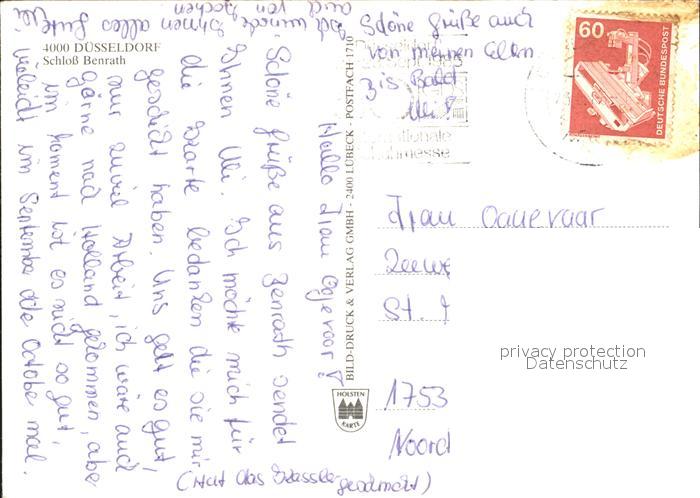 4000 DÜSSELDORF
Schloß Benrath
Hallo Frau Ooyevaar!
Schöne grüße aus Benrath sendet
Ihnen Uli. Ich möchte mich für
die Karte bedanken die sie mir
geschickt haben. Uns geht es gut,
nur zuviel Arbeit, ich wäre auch
gärne nach Holland gekommen, aber
im Moment ist es nicht so gut,
vieleicht im September oder October mal.
Ich wünsche Ihnen alles gute Uli
auch von
(Hat das geschmeckt)
Schöne grüße auch
von meinen Eltern
bis Bald
Uli
BILD-DRUCK & VERLAG GMBH - 2400 LÜBECK - POSTFACH 1710
HOLSTEN
KARTE
60
DEUTSCHE BUNDESPOST
Frau Ooyevaar
Zeewe
St. 1
1753
Noord
privacy protection
Datenschutz